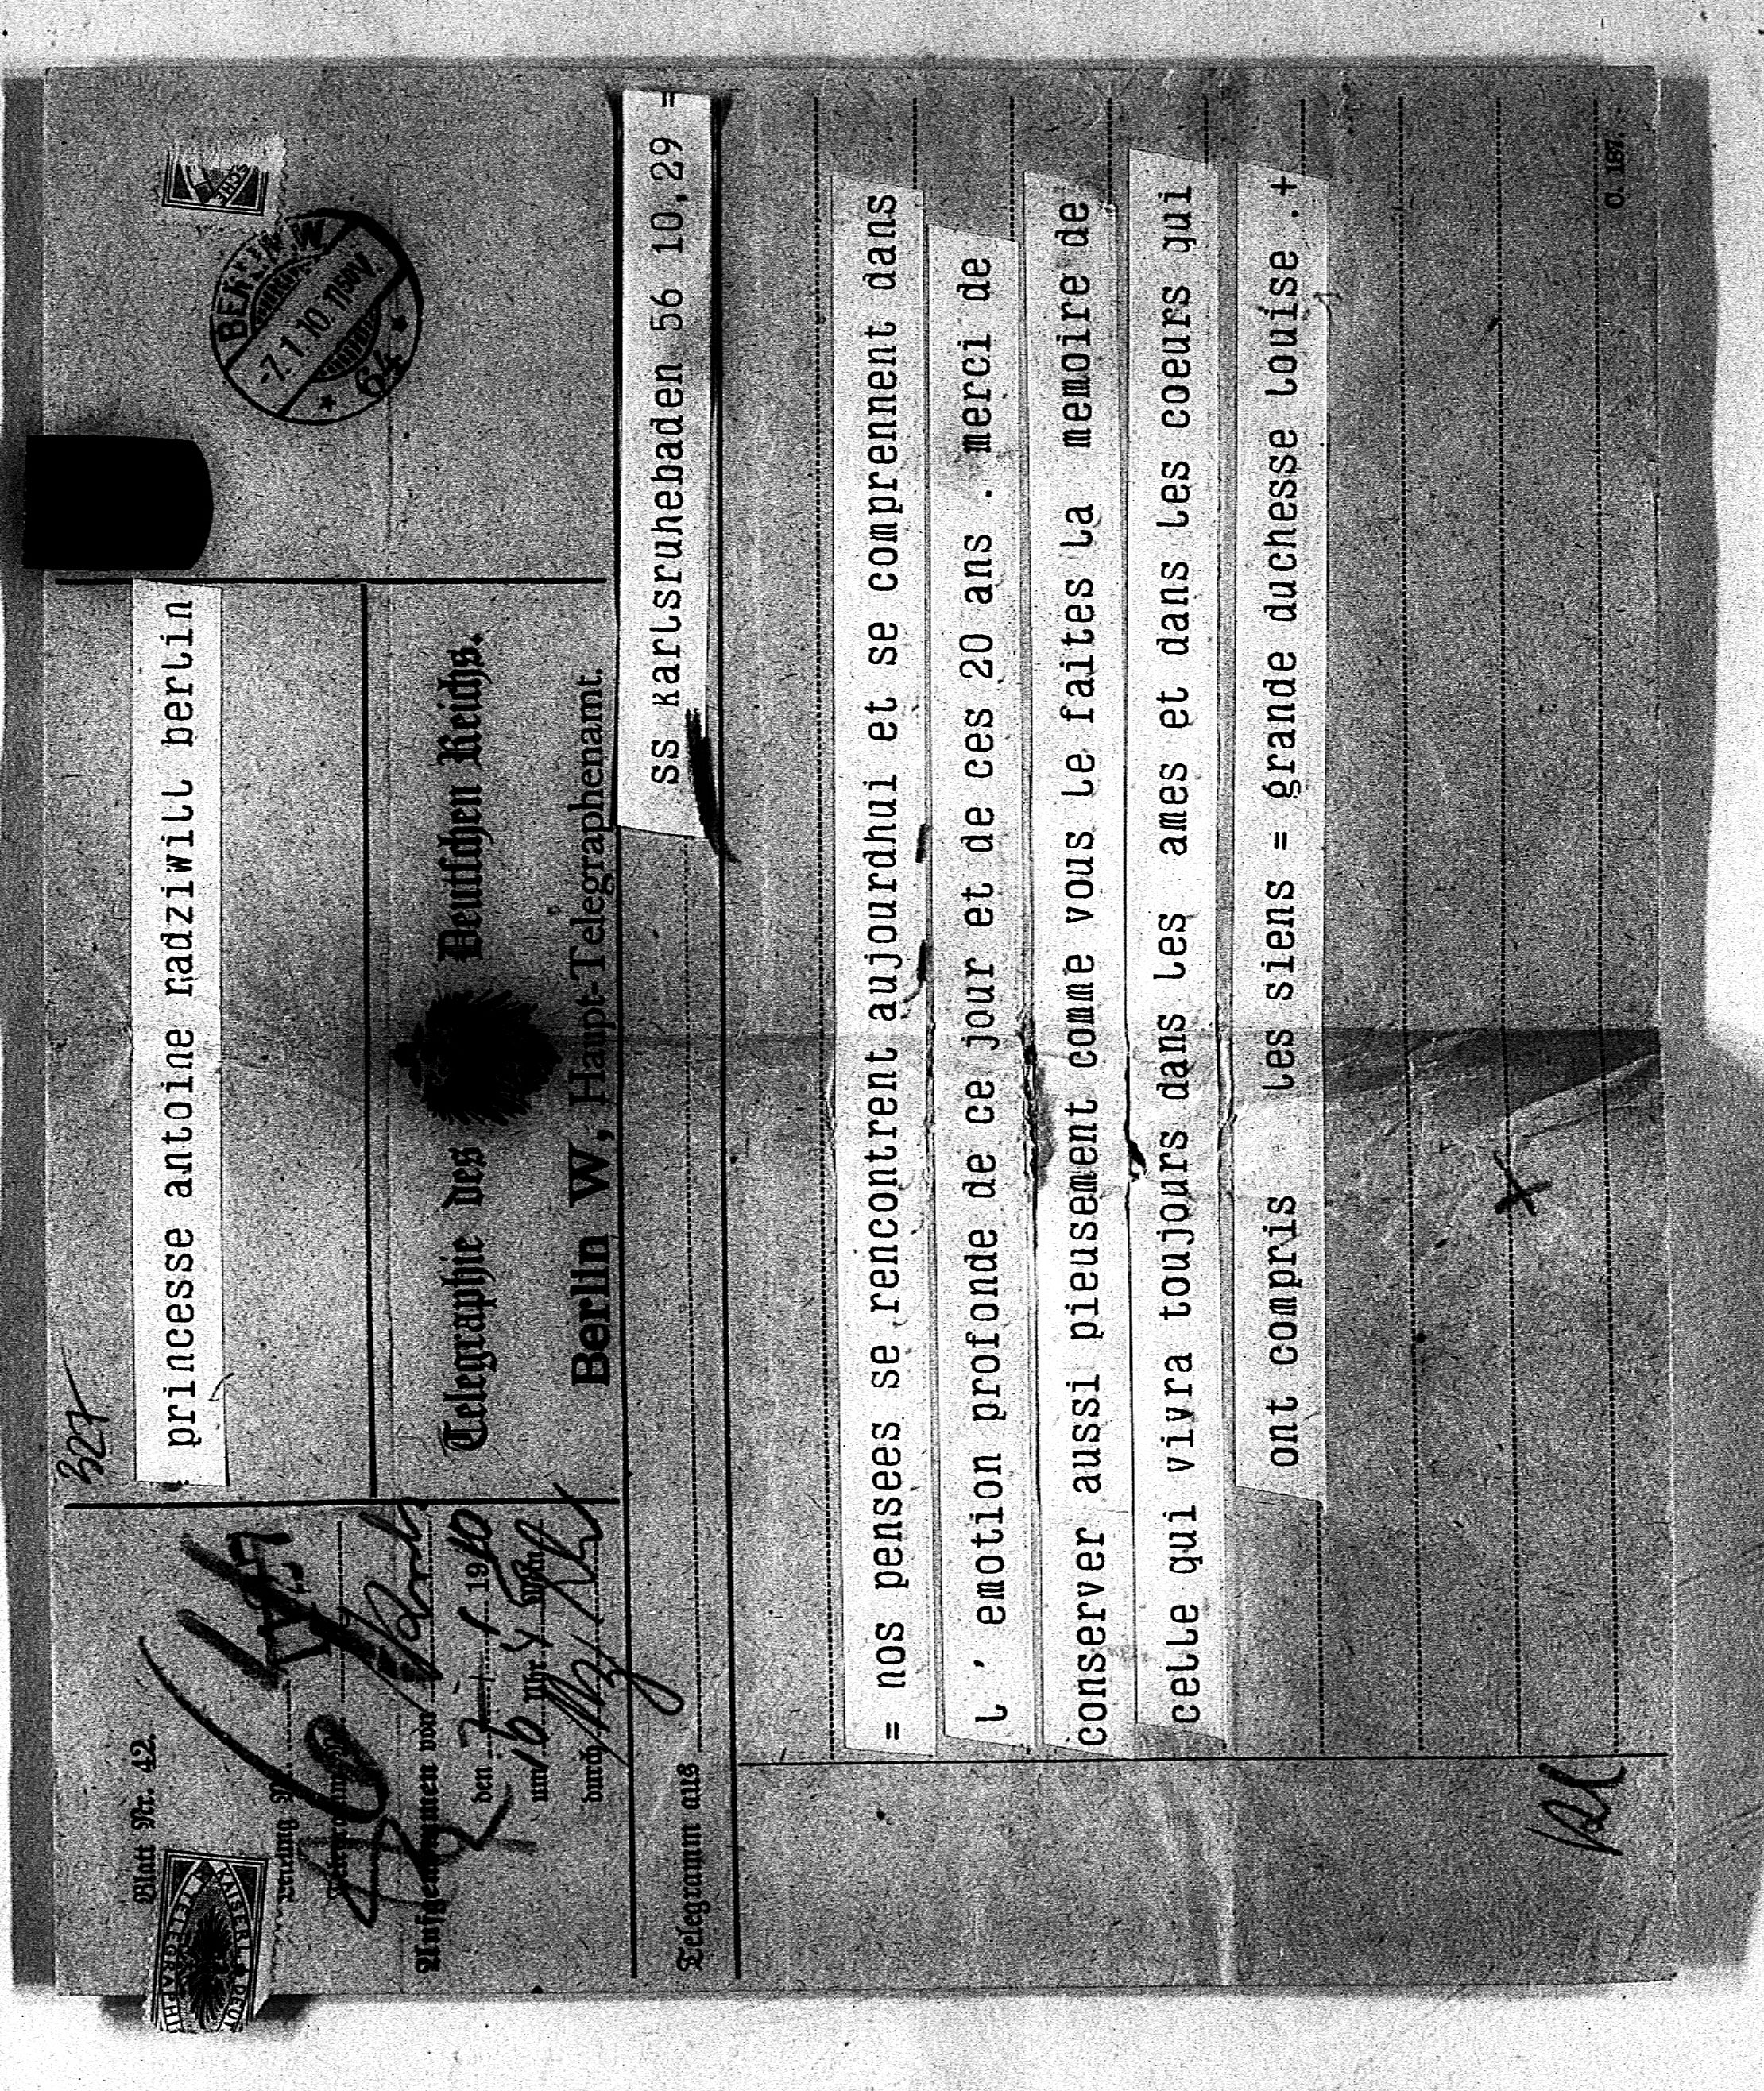 Blatt Nr. 42.
327
princesse antoine radziwill berlin
Telegraphie des Deutschen Reichs.
Berlin W, Haupt-Telegraphenamt.
Leitung
Aufgenommen von
den 7/1 1910
um Uhr
durch
BERLIN W
-7.1.10.1150V.
64
KAISERL DEUT
TELEGRAPHI
Telegramm aus
ss karlsruhebaden 56 10,29 =
= nos pensees se rencontrent aujourdhui et se comprennent dans
l ' emotion profonde de ce jour et de ces 20 ans . merci de
conserver aussi pieusement comme vous le faites la memoire de
celle qui vivra toujours dans les ames et dans les coeurs qui
ont compris les siens = grande duchesse louise .+
C. 187.